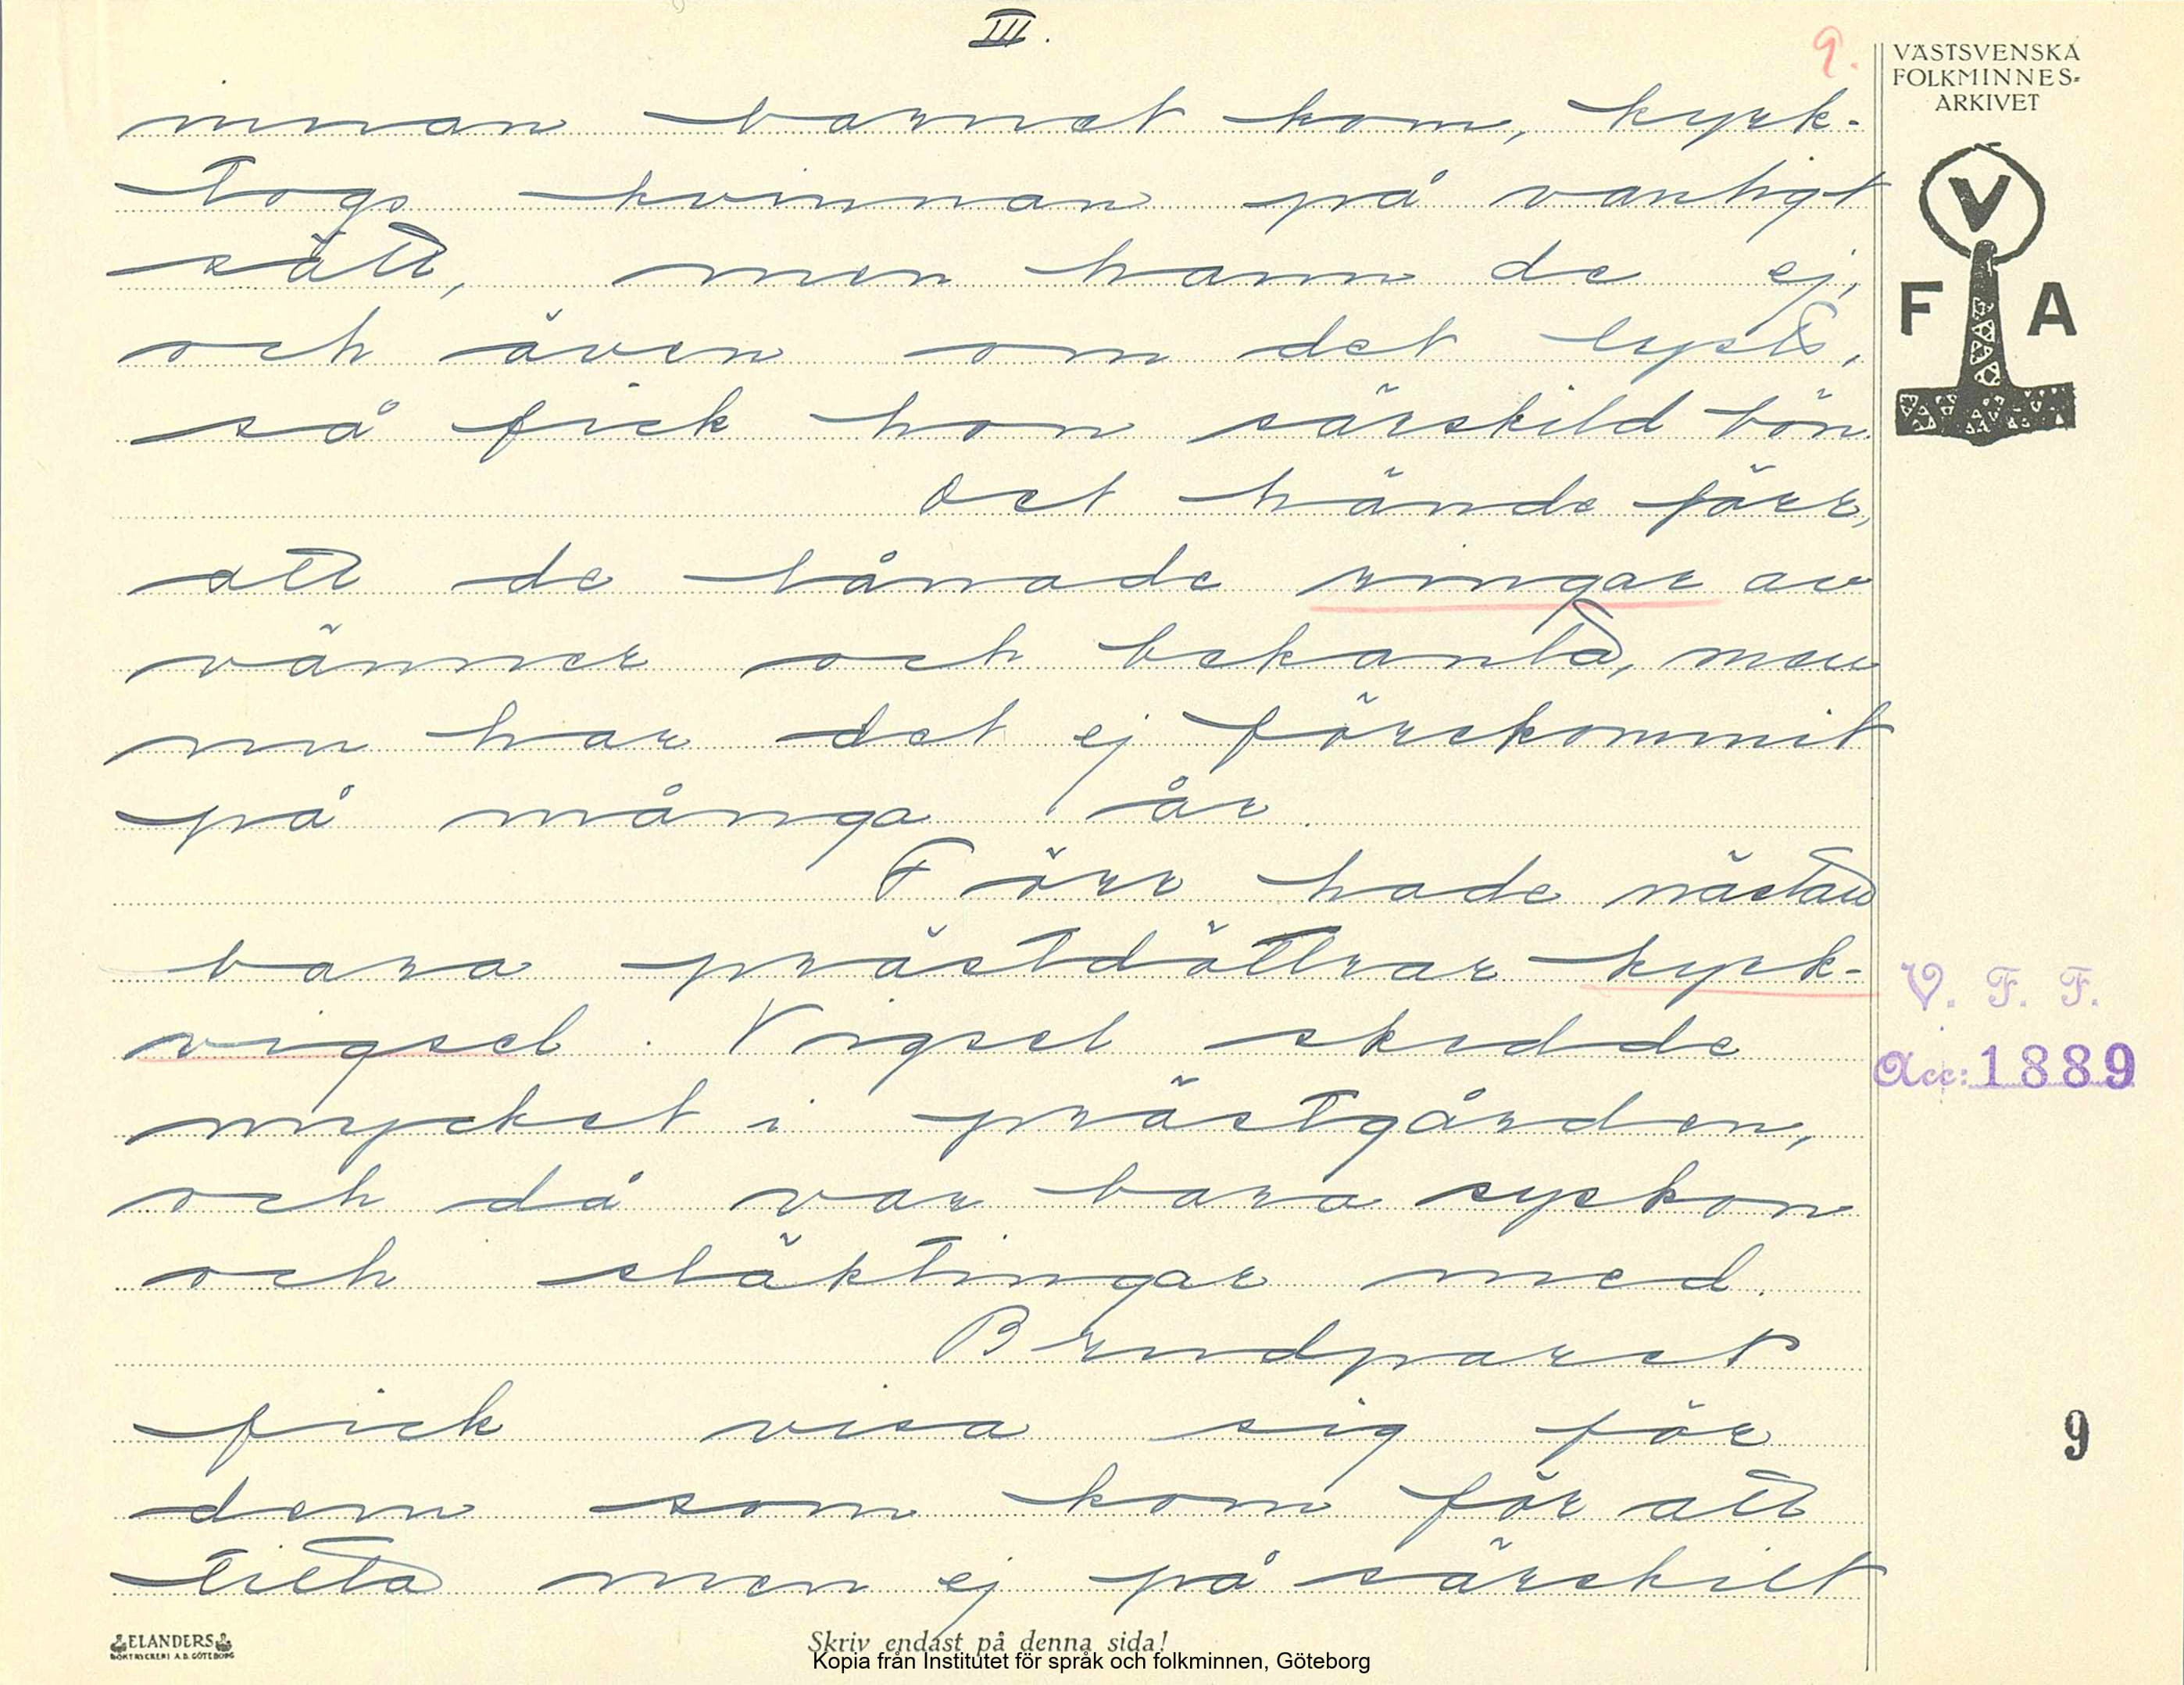 III.
9.
VÄSTSVENSKA
FOLKMINNES-
ARKIVET
V
F A
innan barnet kom, kyrk-
togs kvinnan på vanligt
sätt, men hann de ej,
och även om det lysts,
så fick hon särskild bön.
Det hände förr,
att de lånade ringar av
vänner och bekanta, men
nu har det ej förekommit
på många år.
Förr hade nästan
bara prästdöttrar kyrk-
vigsel. Vigsel skedde
mycket i prästgården,
och då var bara syskon
och släktingar med.
Brudparet
fick visa sig för
dem som kom för att
titta men ej på särskilt
V. F. F.
Acc: 1889
9
ELANDERS
BOKTRYCKERI A.B. GÖTEBORG
Skriv endast på denna sida!
Kopia från Institutet för språk och folkminnen, Göteborg